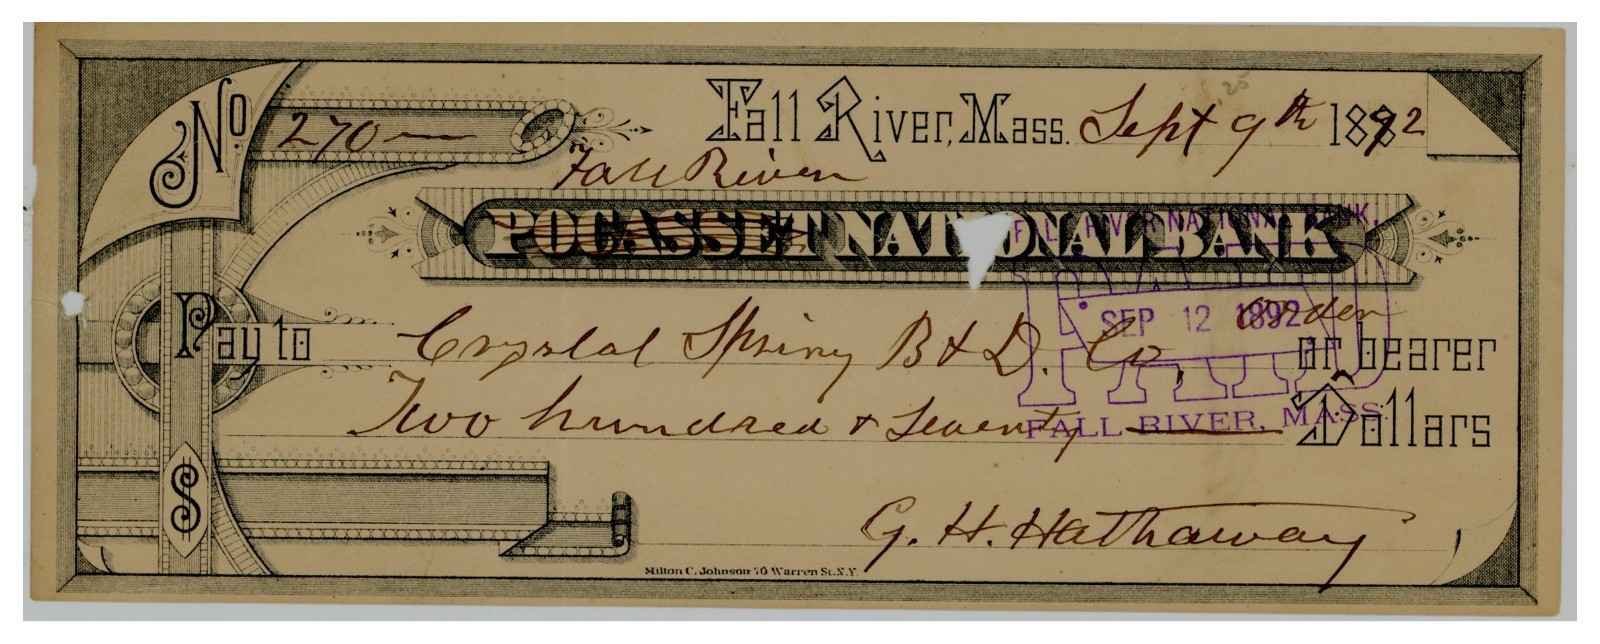 No. 270 —
Fall River, Mass. Sept 9th 1892
Fall River
POCASSET NATIONAL BANK
FALL RIVER NATIONAL BANK,
PAID
SEP 12 1892
Pay to Crystal Spring B & D. Co, or bearer
order
Two hundred & Seventy — Dollars
FALL RIVER, MASS.
$
G. H. Hathaway
Milton C. Johnson 70 Warren St. N.Y.